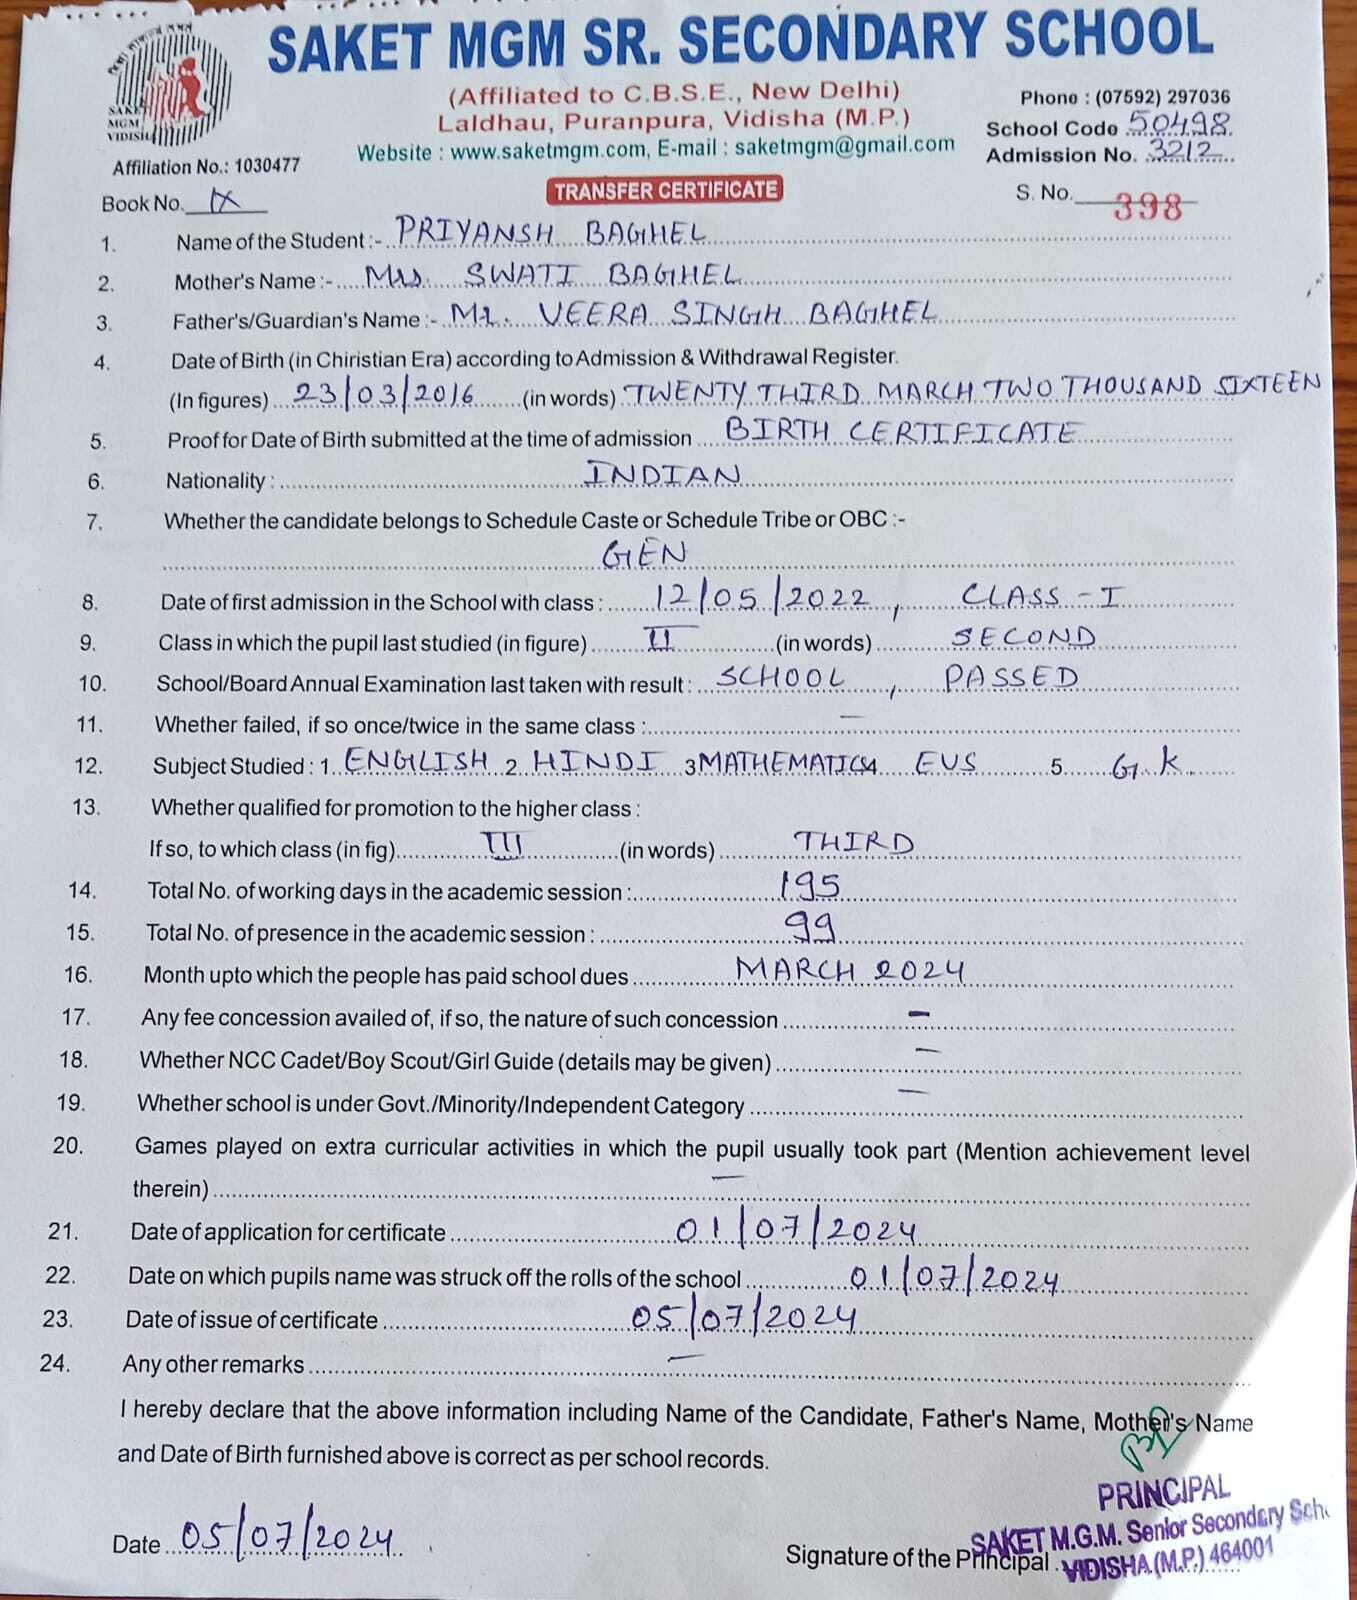 SAKET MGM SR. SECONDARY SCHOOL
(Affiliated to C.B.S.E., New Delhi)
Laldhau, Puranpura, Vidisha (M.P.)
Website : www.saketmgm.com, E-mail : saketmgm@gmail.com
SAKET
MGM
VIDISHA
Affiliation No.: 1030477
Phone : (07592) 297036
School Code 50498
Admission No. 3212
Book No. IX
TRANSFER CERTIFICATE
S. No. 398
1. Name of the Student :- PRIYANSH BAGHEL
2. Mother's Name :- Mrs. SWATI BAGHEL
3. Father's/Guardian's Name :- Mr. VEERA SINGH BAGHEL
4. Date of Birth (in Chiristian Era) according to Admission & Withdrawal Register.
(In figures) 23/03/2016 (in words) TWENTY THIRD MARCH TWO THOUSAND SIXTEEN
5. Proof for Date of Birth submitted at the time of admission BIRTH CERTIFICATE
6. Nationality : INDIAN
7. Whether the candidate belongs to Schedule Caste or Schedule Tribe or OBC :-
GEN
8. Date of first admission in the School with class : 12/05/2022, CLASS - I
9. Class in which the pupil last studied (in figure) II (in words) SECOND
10. School/Board Annual Examination last taken with result : SCHOOL, PASSED
11. Whether failed, if so once/twice in the same class : —
12. Subject Studied : 1. ENGLISH 2 HINDI 3 MATHEMATICS 4 EVS 5. G.K.
13. Whether qualified for promotion to the higher class :
If so, to which class (in fig) III (in words) THIRD
14. Total No. of working days in the academic session : 195
15. Total No. of presence in the academic session : 99
16. Month upto which the people has paid school dues MARCH 2024
17. Any fee concession availed of, if so, the nature of such concession —
18. Whether NCC Cadet/Boy Scout/Girl Guide (details may be given) —
19. Whether school is under Govt./Minority/Independent Category —
20. Games played on extra curricular activities in which the pupil usually took part (Mention achievement level
therein) —
21. Date of application for certificate 01/07/2024
22. Date on which pupils name was struck off the rolls of the school 01/07/2024
23. Date of issue of certificate 05/07/2024
24. Any other remarks —
I hereby declare that the above information including Name of the Candidate, Father's Name, Mother's Name
and Date of Birth furnished above is correct as per school records.
PRINCIPAL
SAKET M.G.M. Senior Secondary Scho
VIDISHA (M.P.) 464001
Date 05/07/2024
Signature of the Principal